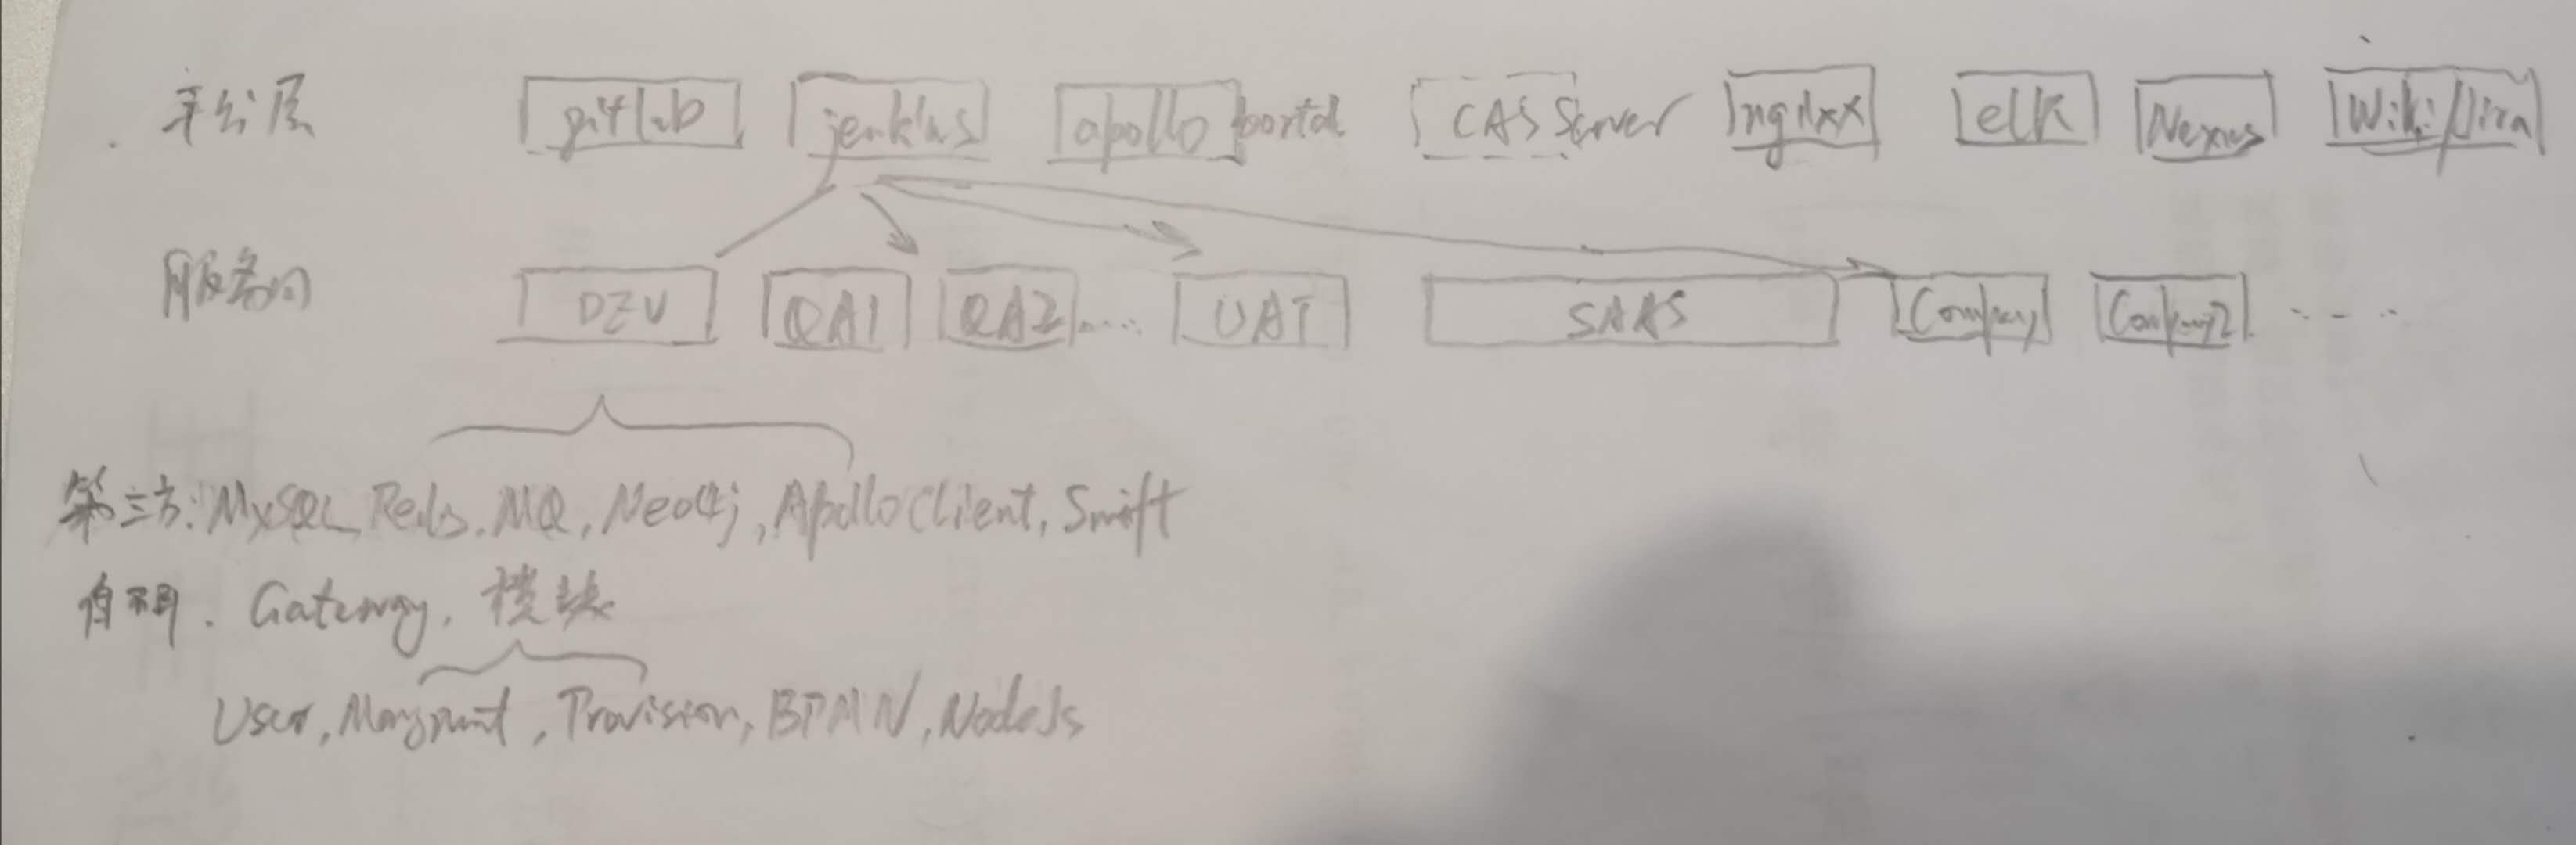 平台层 gitlab jenkins apollo portal CAS Server nginx elk Nexus Wiki/Jira
DEV QA1 QA2 .... UAT SAAS Company Company2 ....
第三方: MySQL Redis. MQ, Neo4j, Apollo Client, Swift
Gateway, 模块
User, Mangment, Provision, BPMN, NodeJs